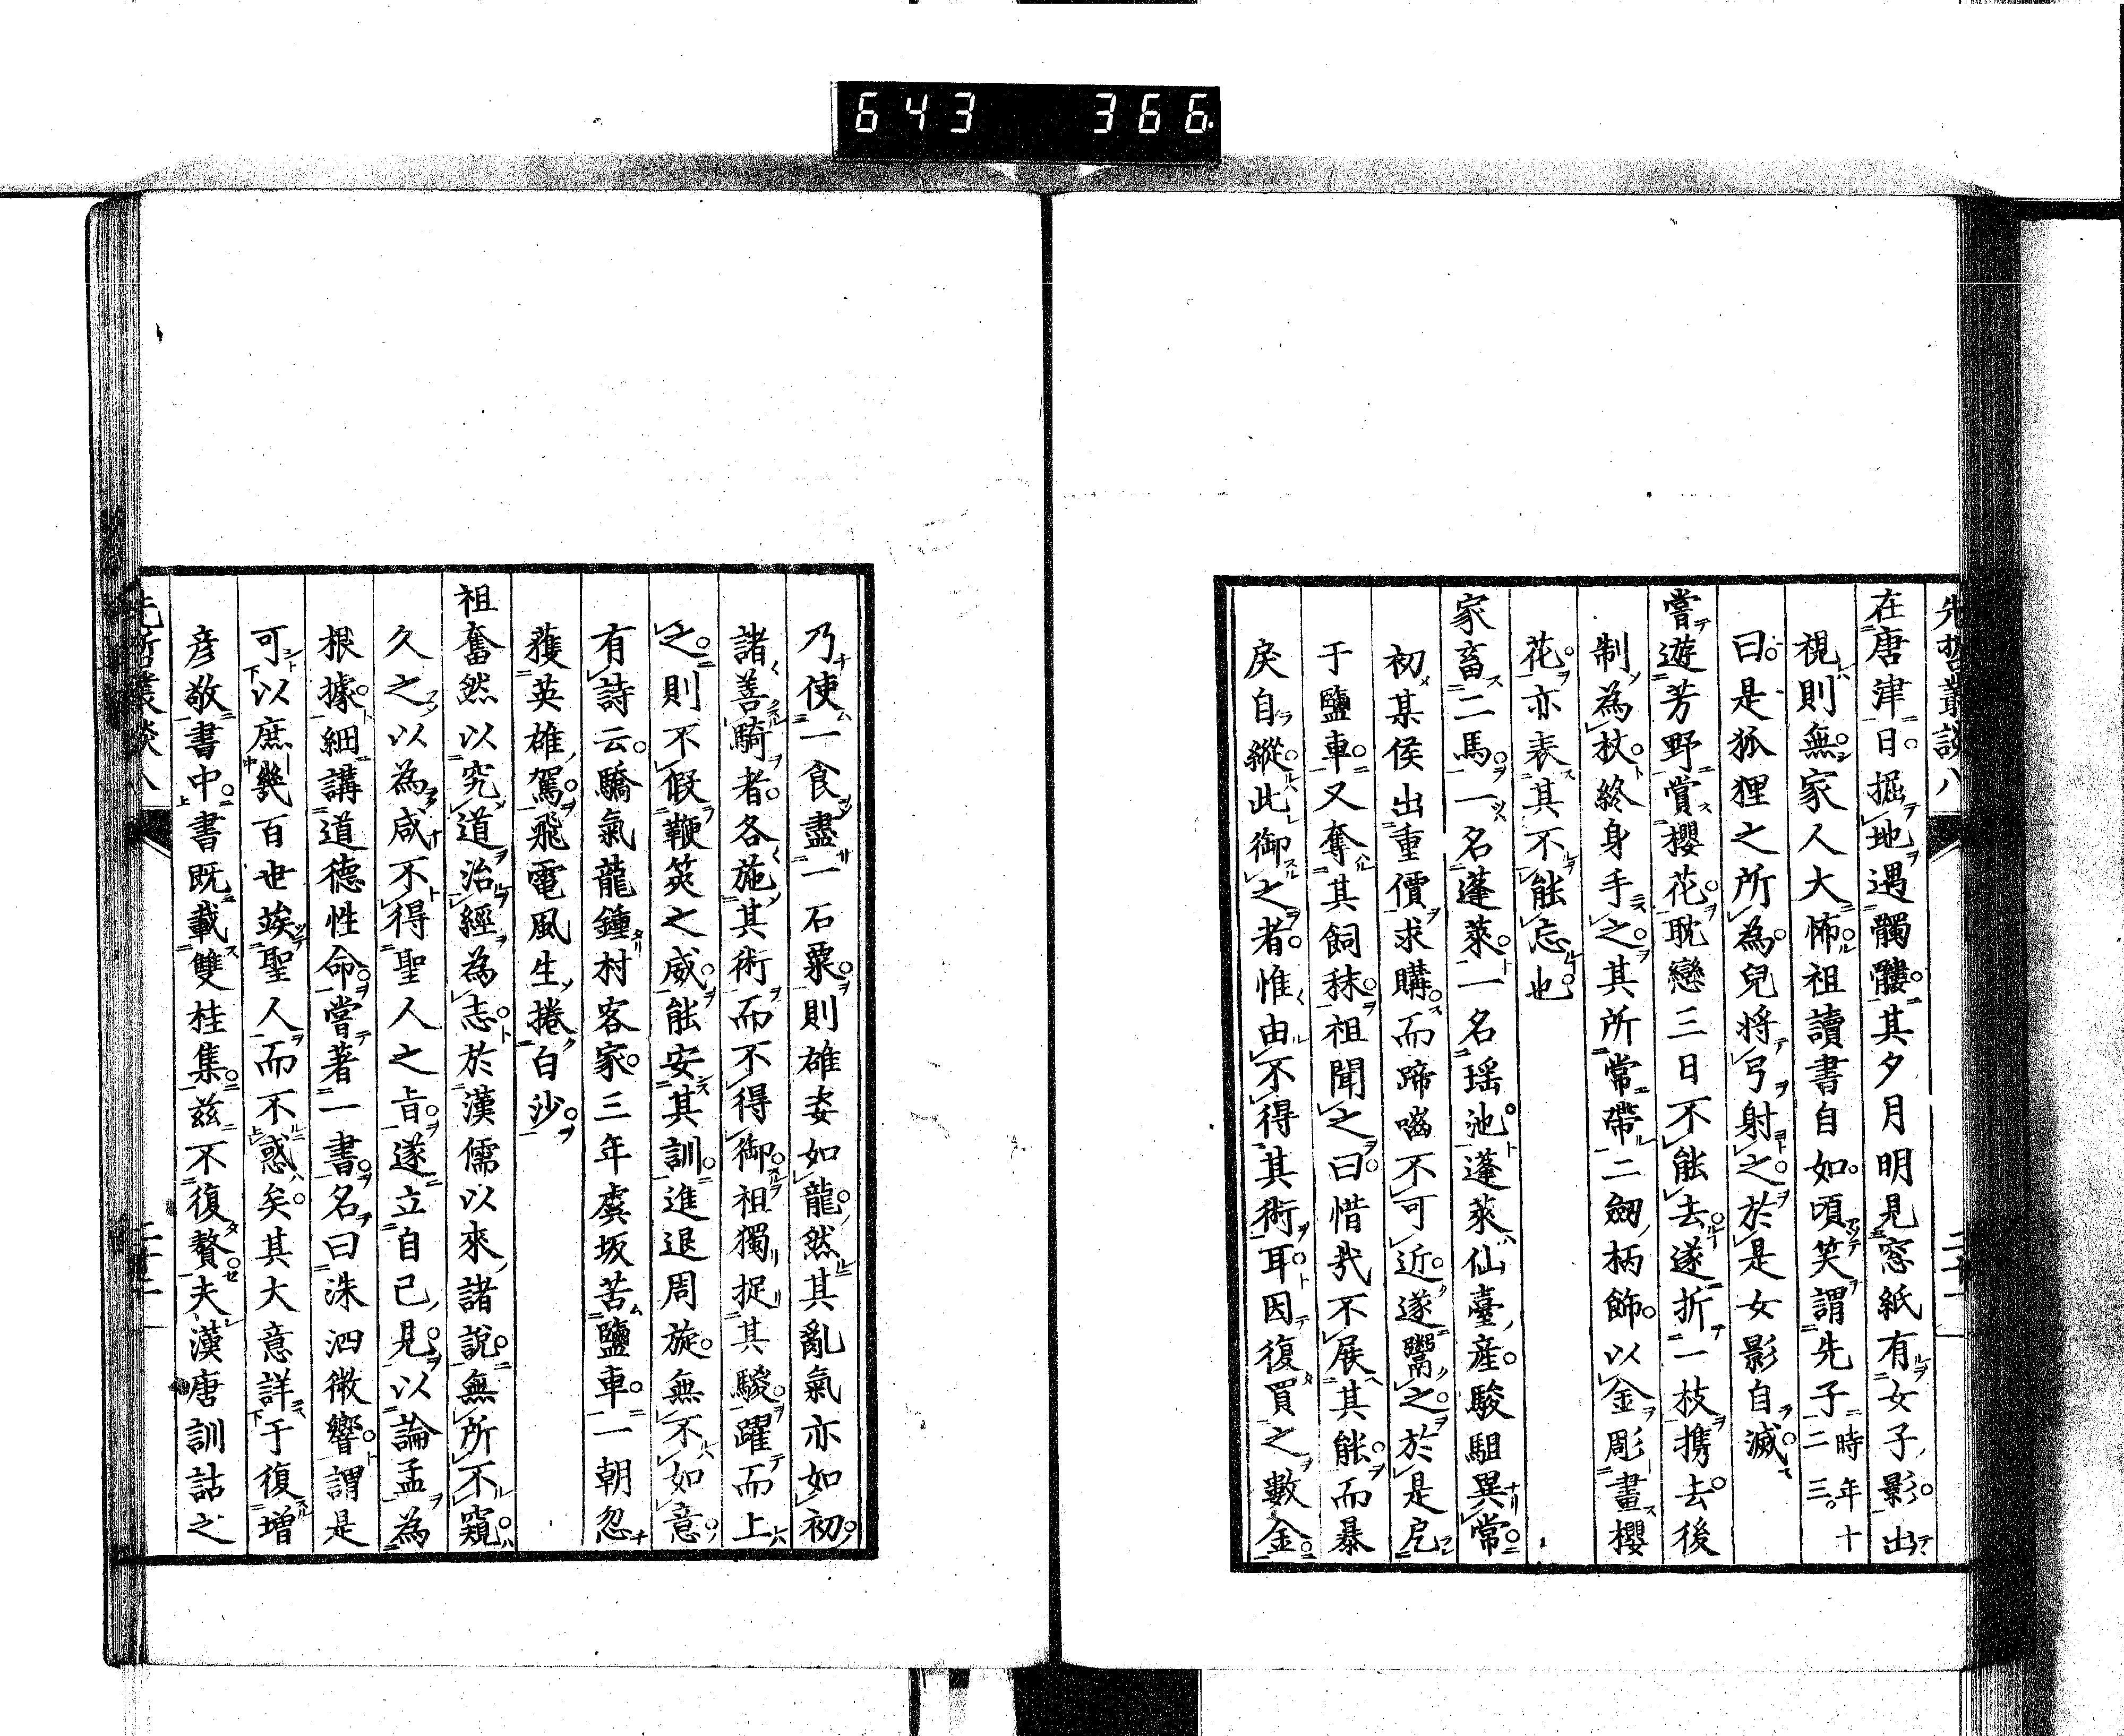 643 366
先哲叢談八
二十一
在唐津日掘地遇髑髏其夕月明見窓紙有女子影出
視則無家人大怖祖讀書自如頃笑謂先子時年十二三
曰是狐狸之所為兒將弓射之於是女影自滅
嘗遊芳野賞櫻花耽戀三日不能去遂折一枝携去後
制為杖終身手之其所常帶二劒柄飾以金彫畫櫻
花亦表其不能忘也
家畜二馬一名蓬萊一名瑶池蓬萊仙臺產駿駔異常
初某侯出重價求購而蹄嚙不可近遂鬻之於是
于鹽車又奪其飼秣祖聞之曰惜哉不展其能而暴
戾自縱此御之者惟由不得其術耳因復買之數金
乃使一食盡一石粟則雄姿如龍然其亂氣亦如初
諸善騎者各施其術而不得御祖獨捉其駿躍而上
之則不假鞭筴之威能安其訓進退周旋無不如意
有詩云驕氣龍鍾村客家三年虞坂苦鹽車一朝忽
獲英雄駕飛電風生捲白沙
祖奮然以究道治經為志於漢儒以來諸說無所不窺
久之以為咸不得聖人之旨遂立自己見以論孟為
根據細講道德性命嘗著一書名曰洙泗微響謂是
可以庶幾百世竢聖人而不惑矣其大意詳于復增
彥敬書中書既載雙桂集茲不復贅夫漢唐訓詁之
先哲叢談八
二十二